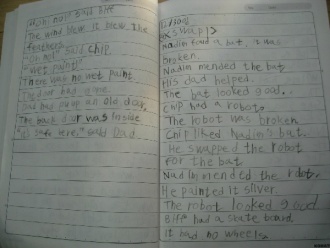 "Oh no!" said Biff
The wind blew it blew the
feathers
"Oh no!" said Chip
"Wet paint!"
There was no wet paint
The door had a
Dad had put up an old dog
The back door was inside
"is safe here," said Dad
swap
Nadim found a bat, it was
broken
Nadim mended the bat
His dad helped.
The bat looked good.
Chip had a robot.
The robot was broken
Chip liked Nadim's bat.
He swapped the robot
for the bat
Nadim mended the robot.
He painted it silver.
The robot looked good
Biff had a skate board
it had no wheels.